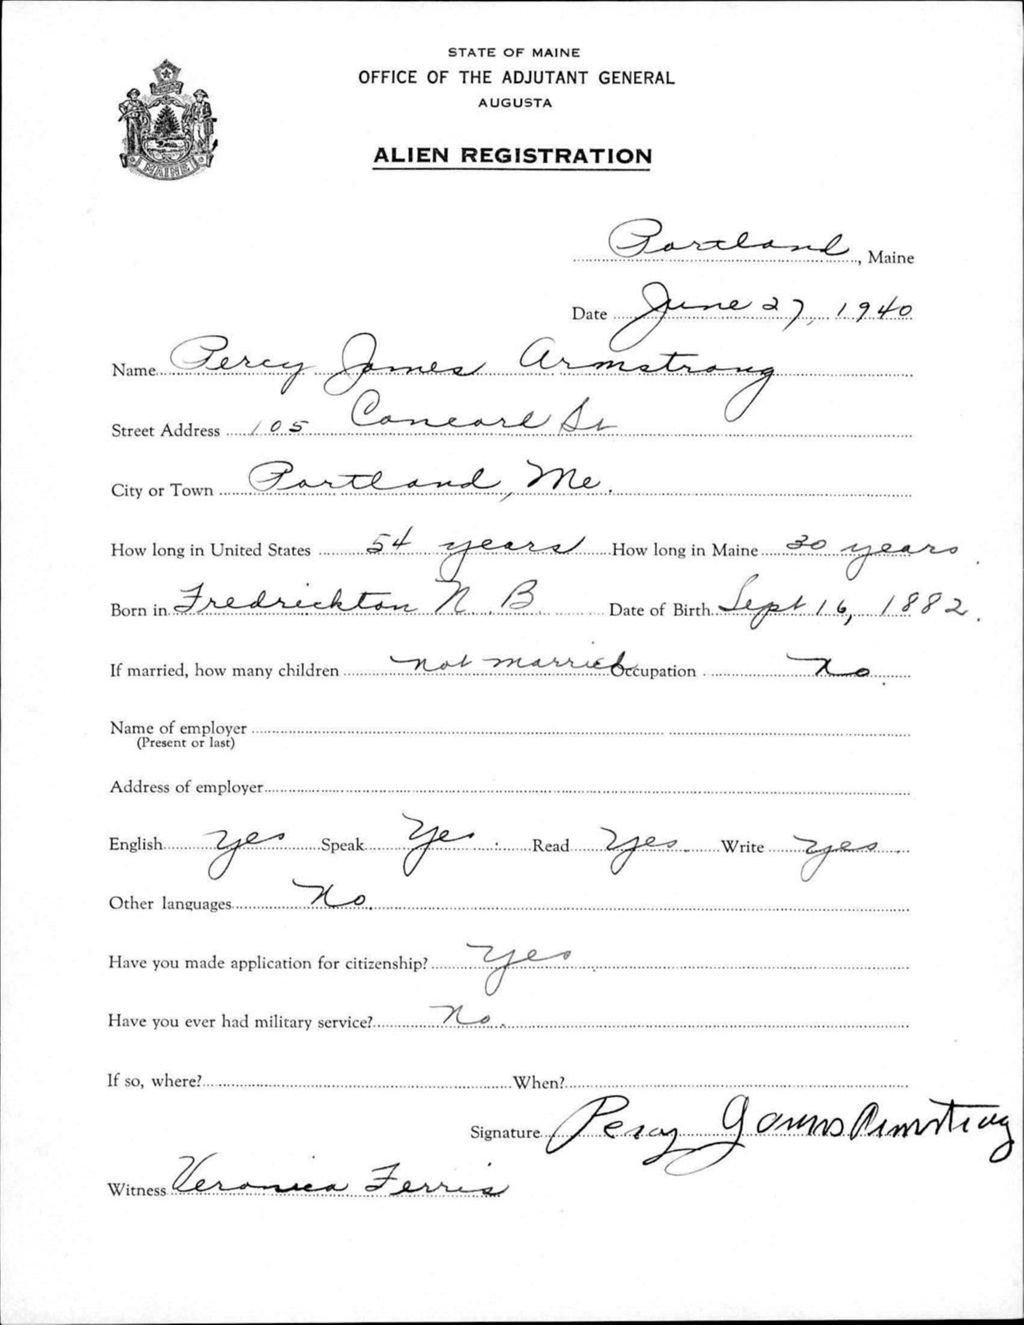 STATE OF MAINE
OFFICE OF THE ADJUTANT GENERAL
AUGUSTA
ALIEN REGISTRATION
MAINE
Portland, Maine
Date June 27, 1940
Name Percy James Armstrong
Street Address 105 Concord St
City or Town Portland, Me.
How long in United States 54 years How long in Maine 30 years
Born in Fredrickton N. B. Date of Birth Sept 16, 1882.
If married, how many children not married Occupation No.
Name of employer
(Present or last)
Address of employer
English yes Speak yes Read yes. Write yes.
Other languages No.
Have you made application for citizenship? yes
Have you ever had military service? No.
If so, where? When?
Signature Percy James Armstrong
Witness Veronica Ferris